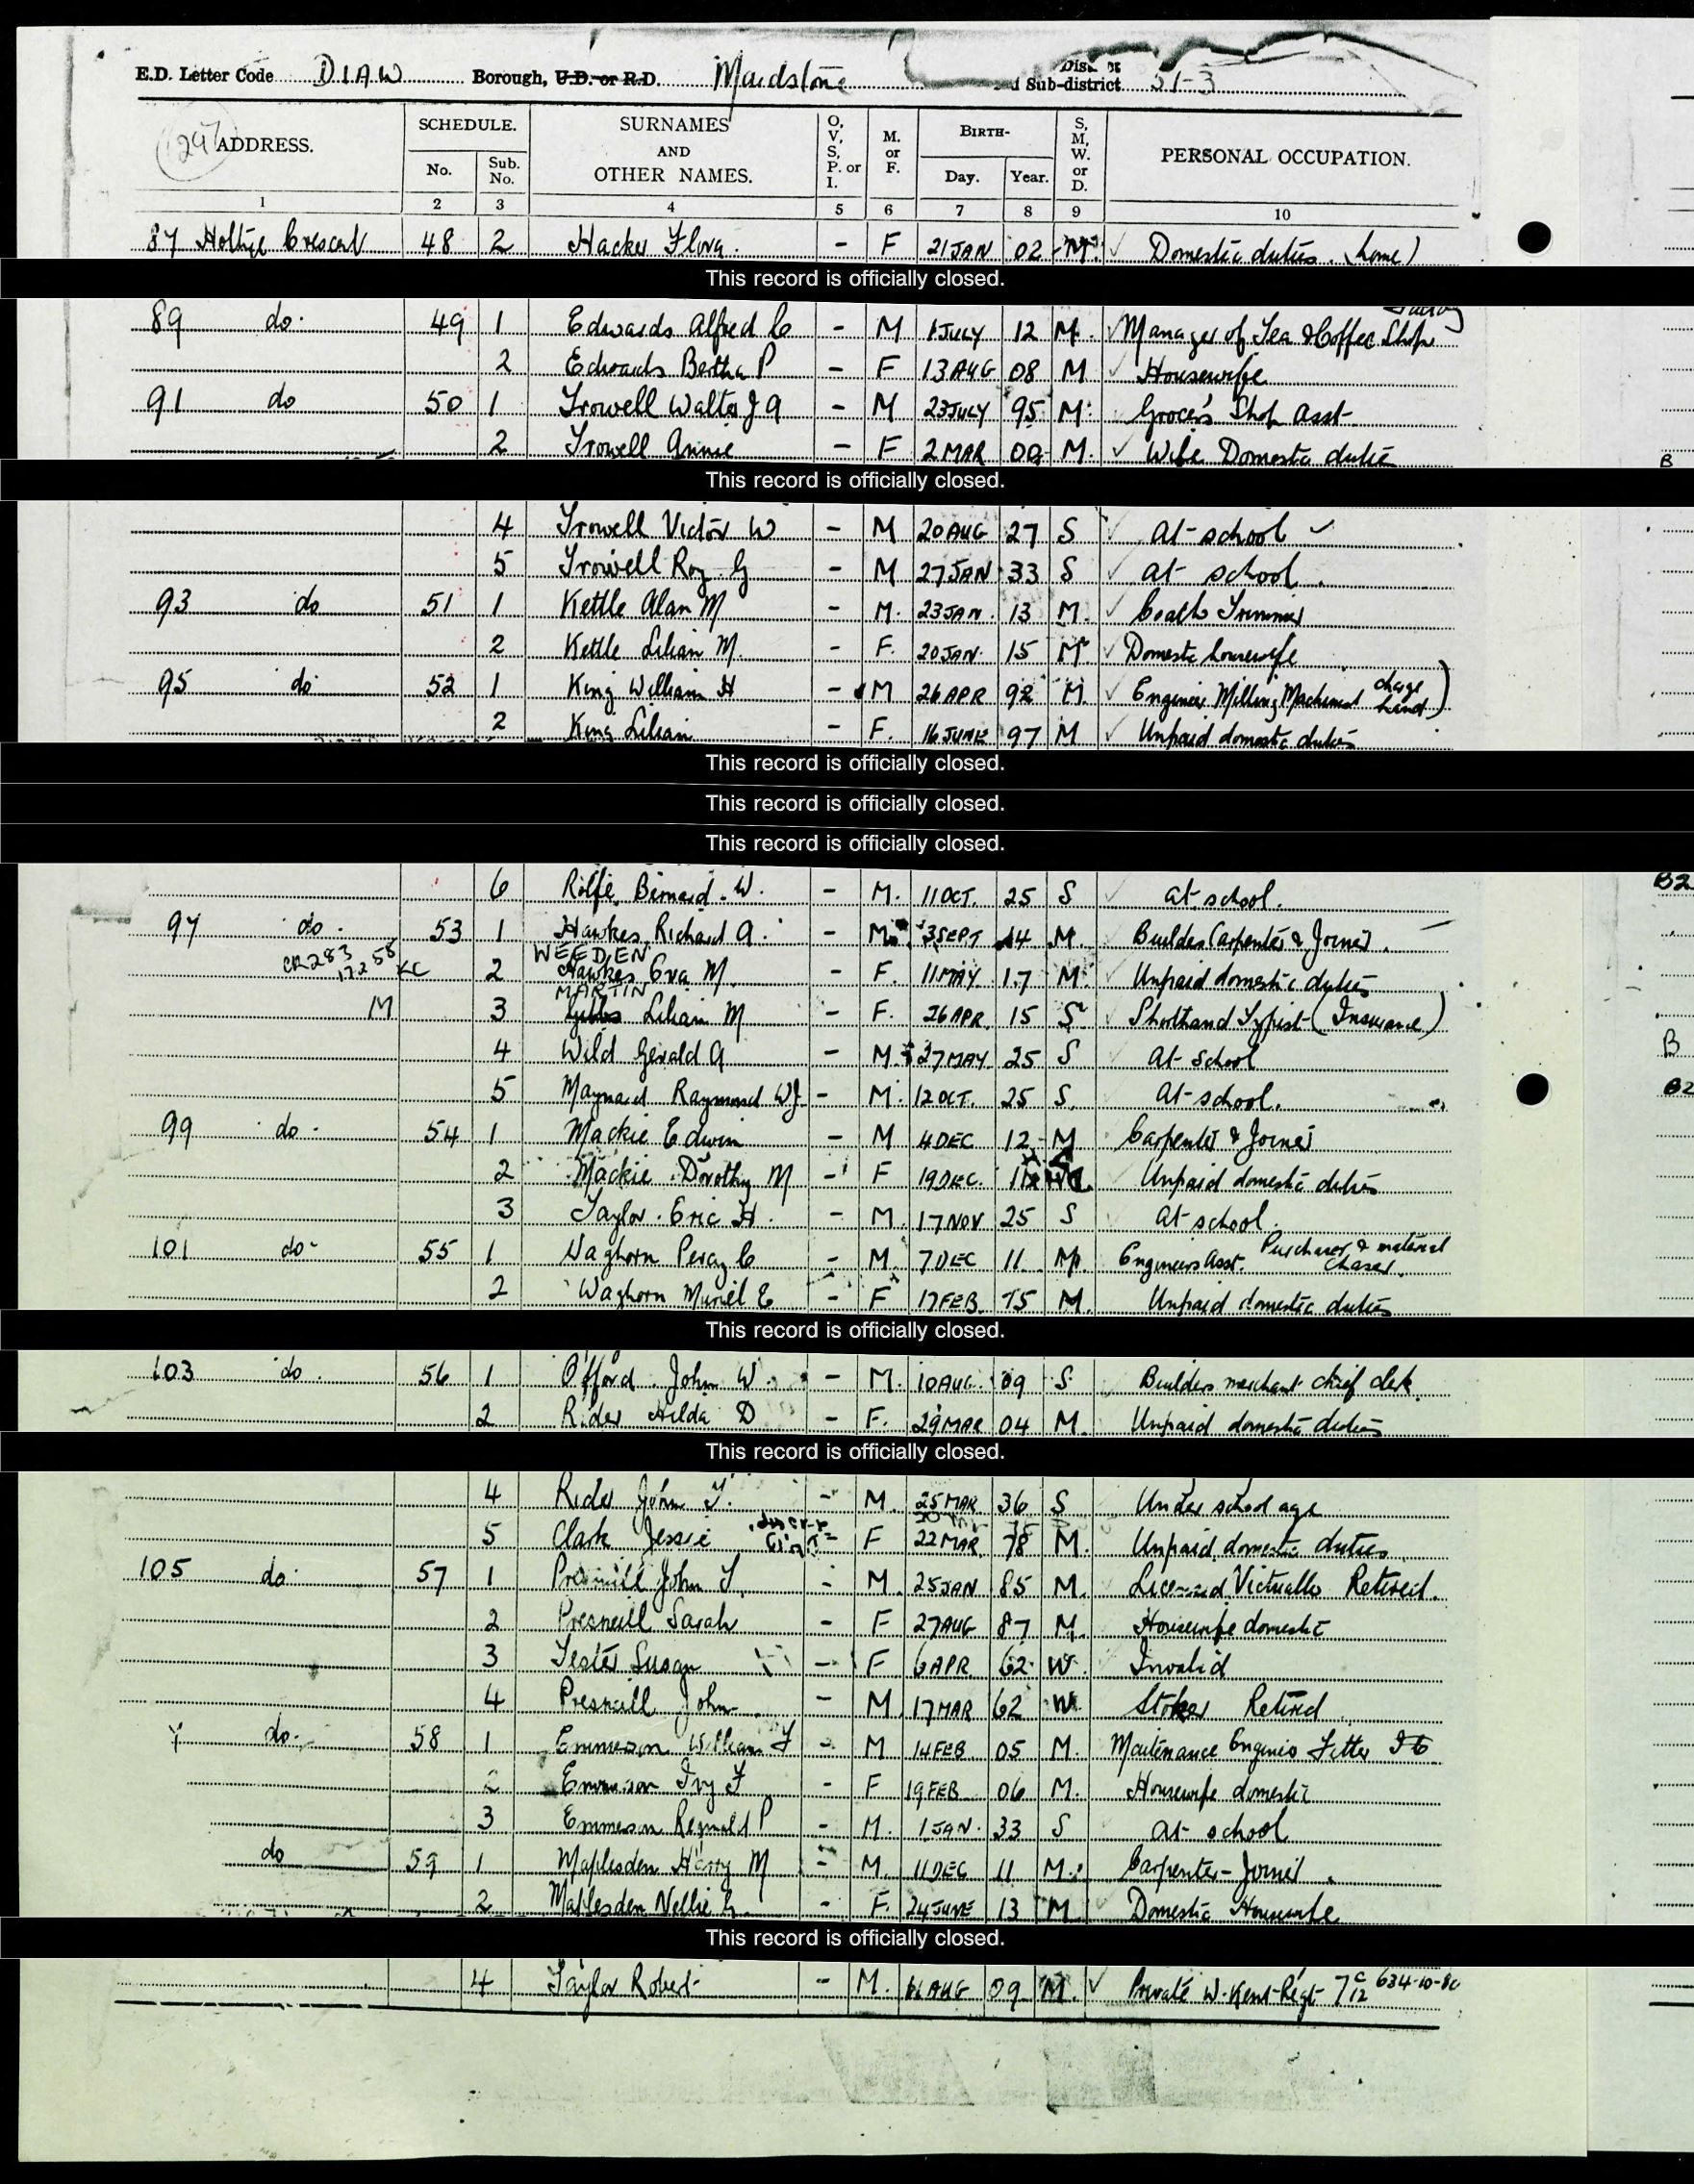 E.D. Letter Code DIAW Borough, U.D. or R.D. Maidstone Sub-district 51-3
297
ADDRESS. SCHEDULE. No. Sub. No. SURNAMES AND OTHER NAMES. O, V, S, P. or I. M. or F. BIRTH- Day. Year. S, M, W. or D. PERSONAL OCCUPATION.
1 2 3 4 5 6 7 8 9 10
87 Holtye Crescent 48 2 Hacker Flora. - F 21 JAN 02 M. Domestic duties. (home)
This record is officially closed.
89 do. 49 1 Edwards Alfred C - M 1 JULY 12 M. Manager of Tea & Coffee Shop
2 Edwards Bertha P - F 13 AUG 08 M Housewife
91 do 50 1 Trowell Walter J A - M 23 JULY 95 M. Grocer's Shop Asst
2 Trowell Annie - F 2 MAR 00 M. Wife Domestic duties B
This record is officially closed.
4 Trowell Victor W - M 20 AUG 27 S At school
5 Trowell Roy G - M 27 JAN 33 S at school.
93 do 51 1 Kettle Alan M - M. 23 JAN. 13 M. Coach Trimmer
2 Kettle Lilian M. - F. 20 JAN. 15 M. Domestic housewife
95 do 52 1 King William H - M 26 APR 92 M. Engineer Milling Machinist charge hand)
2 King Lilian - F. 16 JUNE 97 M Unpaid domestic duties
This record is officially closed.
This record is officially closed.
This record is officially closed.
6 Rolfe, Bernard. W. - M. 11 OCT. 25 S at school. B2
97 do. 53 1 Hawkes Richard A. - M. 3 SEPT 14 M Builder (Carpenter & Joiner).
WEEDEN
CR283 17258 KC 2 Hawkes Eva M. - F. 11 MAY 17 M. Unpaid domestic duties
MARTIN
M 3 Lilian M - F. 26 APR. 15 S Shorthand Typist (Insurance)
4 Wild Gerald A - M. 27 MAY. 25 S At School B
5 Maynard Raymond W J - M. 12 OCT. 25 S. At school. B2
99 do. 54 1 Mackie Edwin - M 4 DEC 12 M Carpenter & Joiner
2 Mackie Dorothy M - F 19 DEC. Unpaid domestic duties
3 Taylor Eric H. - M. 17 NOV 25 S at school.
101 do 55 1 Waghorn Percy C - M. 7 DEC 11 M. Engineers Asst. Purchaser & material chaser.
2 Waghorn Muriel E - F 17 FEB. 15 M. Unpaid domestic duties
This record is officially closed.
103 do. 56 1 Offord John W. - M. 10 AUG. 09 S Builders merchant chief clerk.
2 Rider Hilda D - F. 29 MAR 04 M. Unpaid domestic duties
This record is officially closed.
4 Rider John T. - M. 25 MAR 36 S Under school age
5 Clark Jessie - F 22 MAR 78 M. Unpaid domestic duties
105 do. 57 1 Presneill John T. - M. 25 JAN 85 M. Licensed Victualler Retired.
2 Presneill Sarah - F 27 AUG 87 M. Housewife domestic
3 Tester Susan - F 6 APR 62 W. Invalid
4 Presneill John - M 17 MAR 62 W. Stoker Retired
do. 58 1 Emmerson William F - M 14 FEB 05 M. Maitenance Engineer Fitter
2 Emmerson Ivy F - F 19 FEB 06 M. Housewife domestic
3 Emmerson Reginald P - M. 1 JAN. 33 S at school
do 59 1 Maplesden Harry M - M. 11 DEC 11 M. Carpenter - Joiner
2 Maplesden Nellie - F. 24 JUNE 13 M Domestic Housewife
This record is officially closed.
4 Taylor Robert - M. AUG 09 M. Private W. Kent Regt 634-10-80